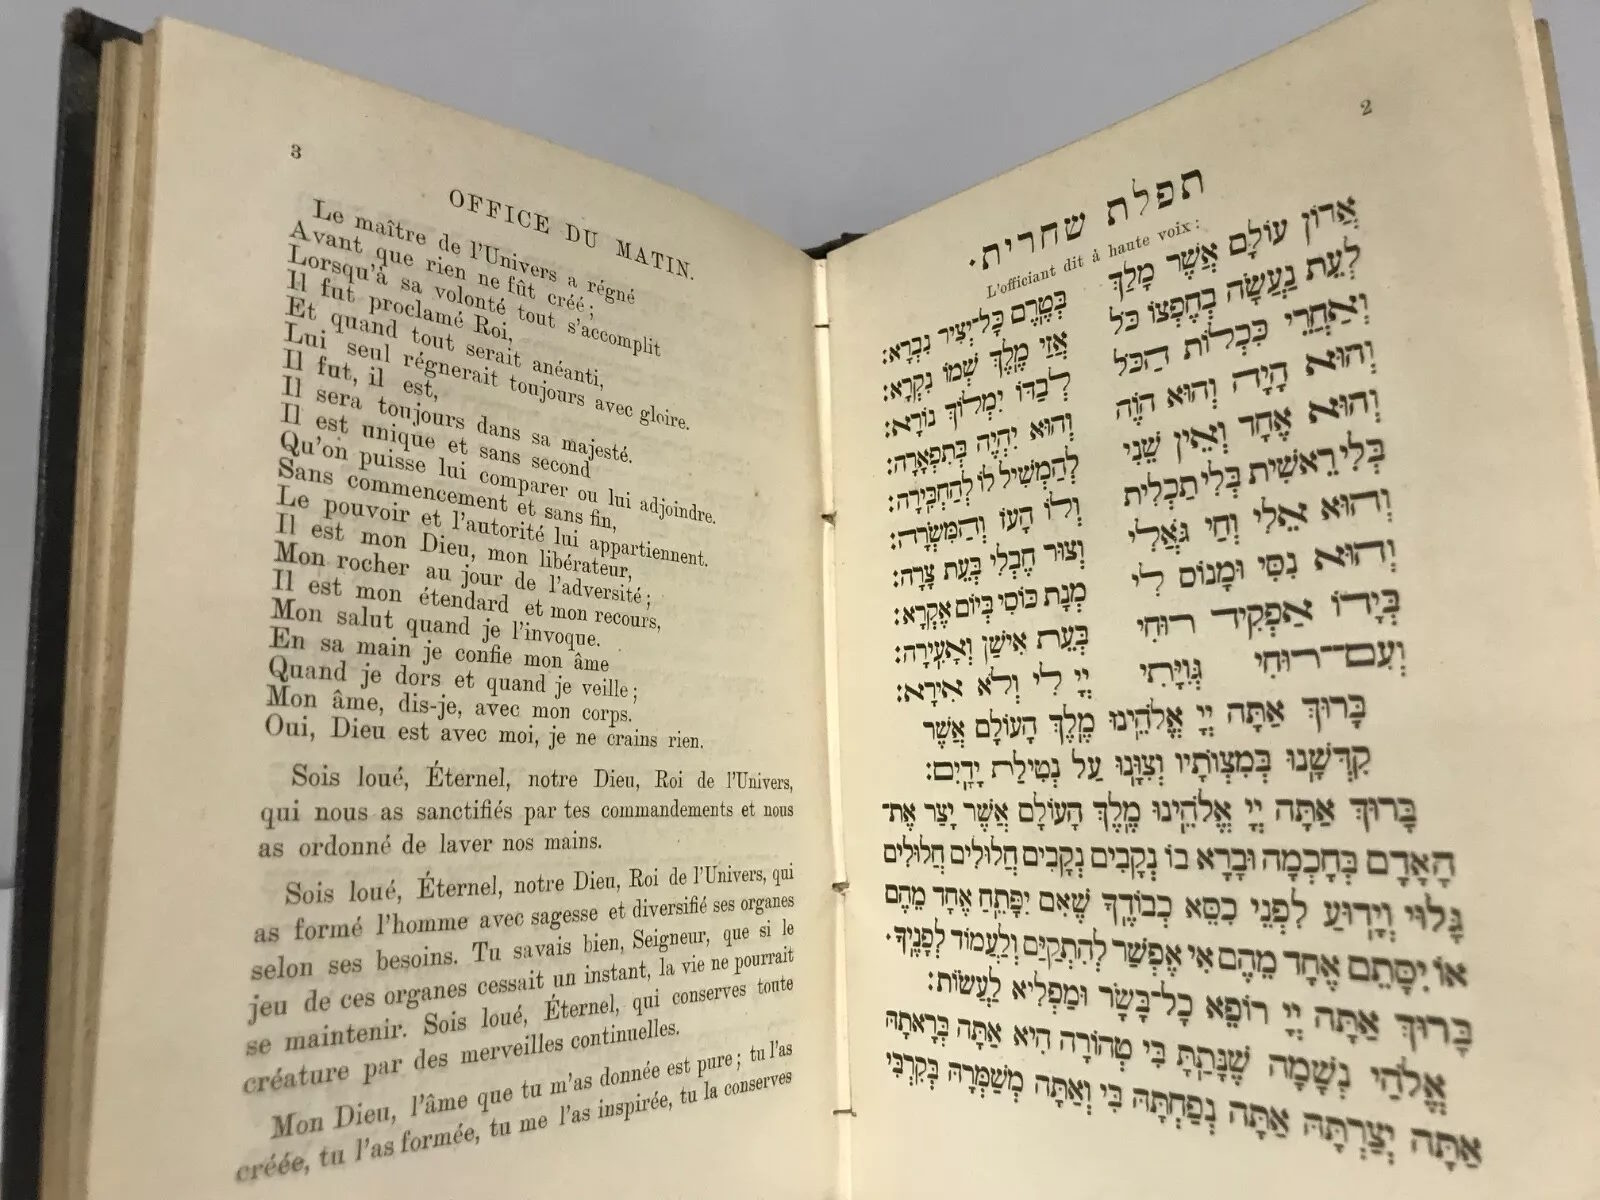 2
תפלת שחרית.
L'officiant dit à haute voix:
אֲדוֹן עוֹלָם אֲשֶׁר מָלַךְ בְּטֶרֶם כָּל־יְצִיר נִבְרָא:
לְעֵת נַעֲשָׂה בְחֶפְצוֹ כֹּל אֲזַי מֶלֶךְ שְׁמוֹ נִקְרָא:
וְאַחֲרֵי כִּכְלוֹת הַכֹּל לְבַדּוֹ יִמְלוֹךְ נוֹרָא:
וְהוּא הָיָה וְהוּא הֹוֶה וְהוּא יִהְיֶה בְּתִפְאָרָה:
וְהוּא אֶחָד וְאֵין שֵׁנִי לְהַמְשִׁיל לוֹ לְהַחְבִּירָה:
בְּלִי רֵאשִׁית בְּלִי תַכְלִית וְלוֹ הָעֹז וְהַמִּשְׂרָה:
וְהוּא אֵלִי וְחַי גֹּאֲלִי וְצוּר חֶבְלִי בְּעֵת צָרָה:
וְהוּא נִסִּי וּמָנוֹם לִי מְנָת כּוֹסִי בְּיוֹם אֶקְרָא:
בְּיָדוֹ אַפְקִיד רוּחִי בְּעֵת אִישַׁן וְאָעִירָה:
וְעִם־רוּחִי גְּוִיָּתִי יְיָ לִי וְלֹא אִירָא:
בָּרוּךְ אַתָּה יְיָ אֱלֹהֵינוּ מֶלֶךְ הָעוֹלָם אֲשֶׁר
קִדְּשָׁנוּ בְּמִצְוֹתָיו וְצִוָּנוּ עַל נְטִילַת יָדָיִם:
בָּרוּךְ אַתָּה יְיָ אֱלֹהֵינוּ מֶלֶךְ הָעוֹלָם אֲשֶׁר יָצַר אֶת־
הָאָדָם בְּחָכְמָה וּבָרָא בוֹ נְקָבִים נְקָבִים חֲלוּלִים חֲלוּלִים
גָּלוּי וְיָדוּעַ לִפְנֵי כִסֵּא כְבוֹדֶךָ שֶׁאִם יִפָּתֵחַ אֶחָד מֵהֶם
אוֹ יִסָּתֵם אֶחָד מֵהֶם אִי אֶפְשַׁר לְהִתְקַיֵּם וְלַעֲמוֹד לְפָנֶיךָ.
בָּרוּךְ אַתָּה יְיָ רוֹפֵא כָל־בָּשָׂר וּמַפְלִיא לַעֲשׂוֹת:
אֱלֹהַי נְשָׁמָה שֶׁנָּתַתָּ בִּי טְהוֹרָה הִיא אַתָּה בְרָאתָהּ
אַתָּה יְצַרְתָּהּ אַתָּה נְפַחְתָּהּ בִּי וְאַתָּה מְשַׁמְּרָהּ בְּקִרְבִּי
3
OFFICE DU MATIN.
Le maître de l'Univers a régné
Avant que rien ne fût créé;
Lorsqu'à sa volonté tout s'accomplit
Il fut proclamé Roi,
Et quand tout serait anéanti,
Lui seul régnerait toujours avec gloire.
Il fut, il est,
Il sera toujours dans sa majesté.
Il est unique et sans second
Qu'on puisse lui comparer ou lui adjoindre.
Sans commencement et sans fin,
Le pouvoir et l'autorité lui appartiennent.
Il est mon Dieu, mon libérateur,
Mon rocher au jour de l'adversité;
Il est mon étendard et mon recours,
Mon salut quand je l'invoque.
En sa main je confie mon âme
Quand je dors et quand je veille;
Mon âme, dis-je, avec mon corps.
Oui, Dieu est avec moi, je ne crains rien.
Sois loué, Éternel, notre Dieu, Roi de l'Univers,
qui nous as sanctifiés par tes commandements et nous
as ordonné de laver nos mains.
Sois loué, Éternel, notre Dieu, Roi de l'Univers, qui
as formé l'homme avec sagesse et diversifié ses organes
selon ses besoins. Tu savais bien, Seigneur, que si le
jeu de ces organes cessait un instant, la vie ne pourrait
se maintenir. Sois loué, Éternel, qui conserves toute
créature par des merveilles continuelles.
Mon Dieu, l'âme que tu m'as donnée est pure; tu l'as
créée, tu l'as formée, tu me l'as inspirée, tu la conserves